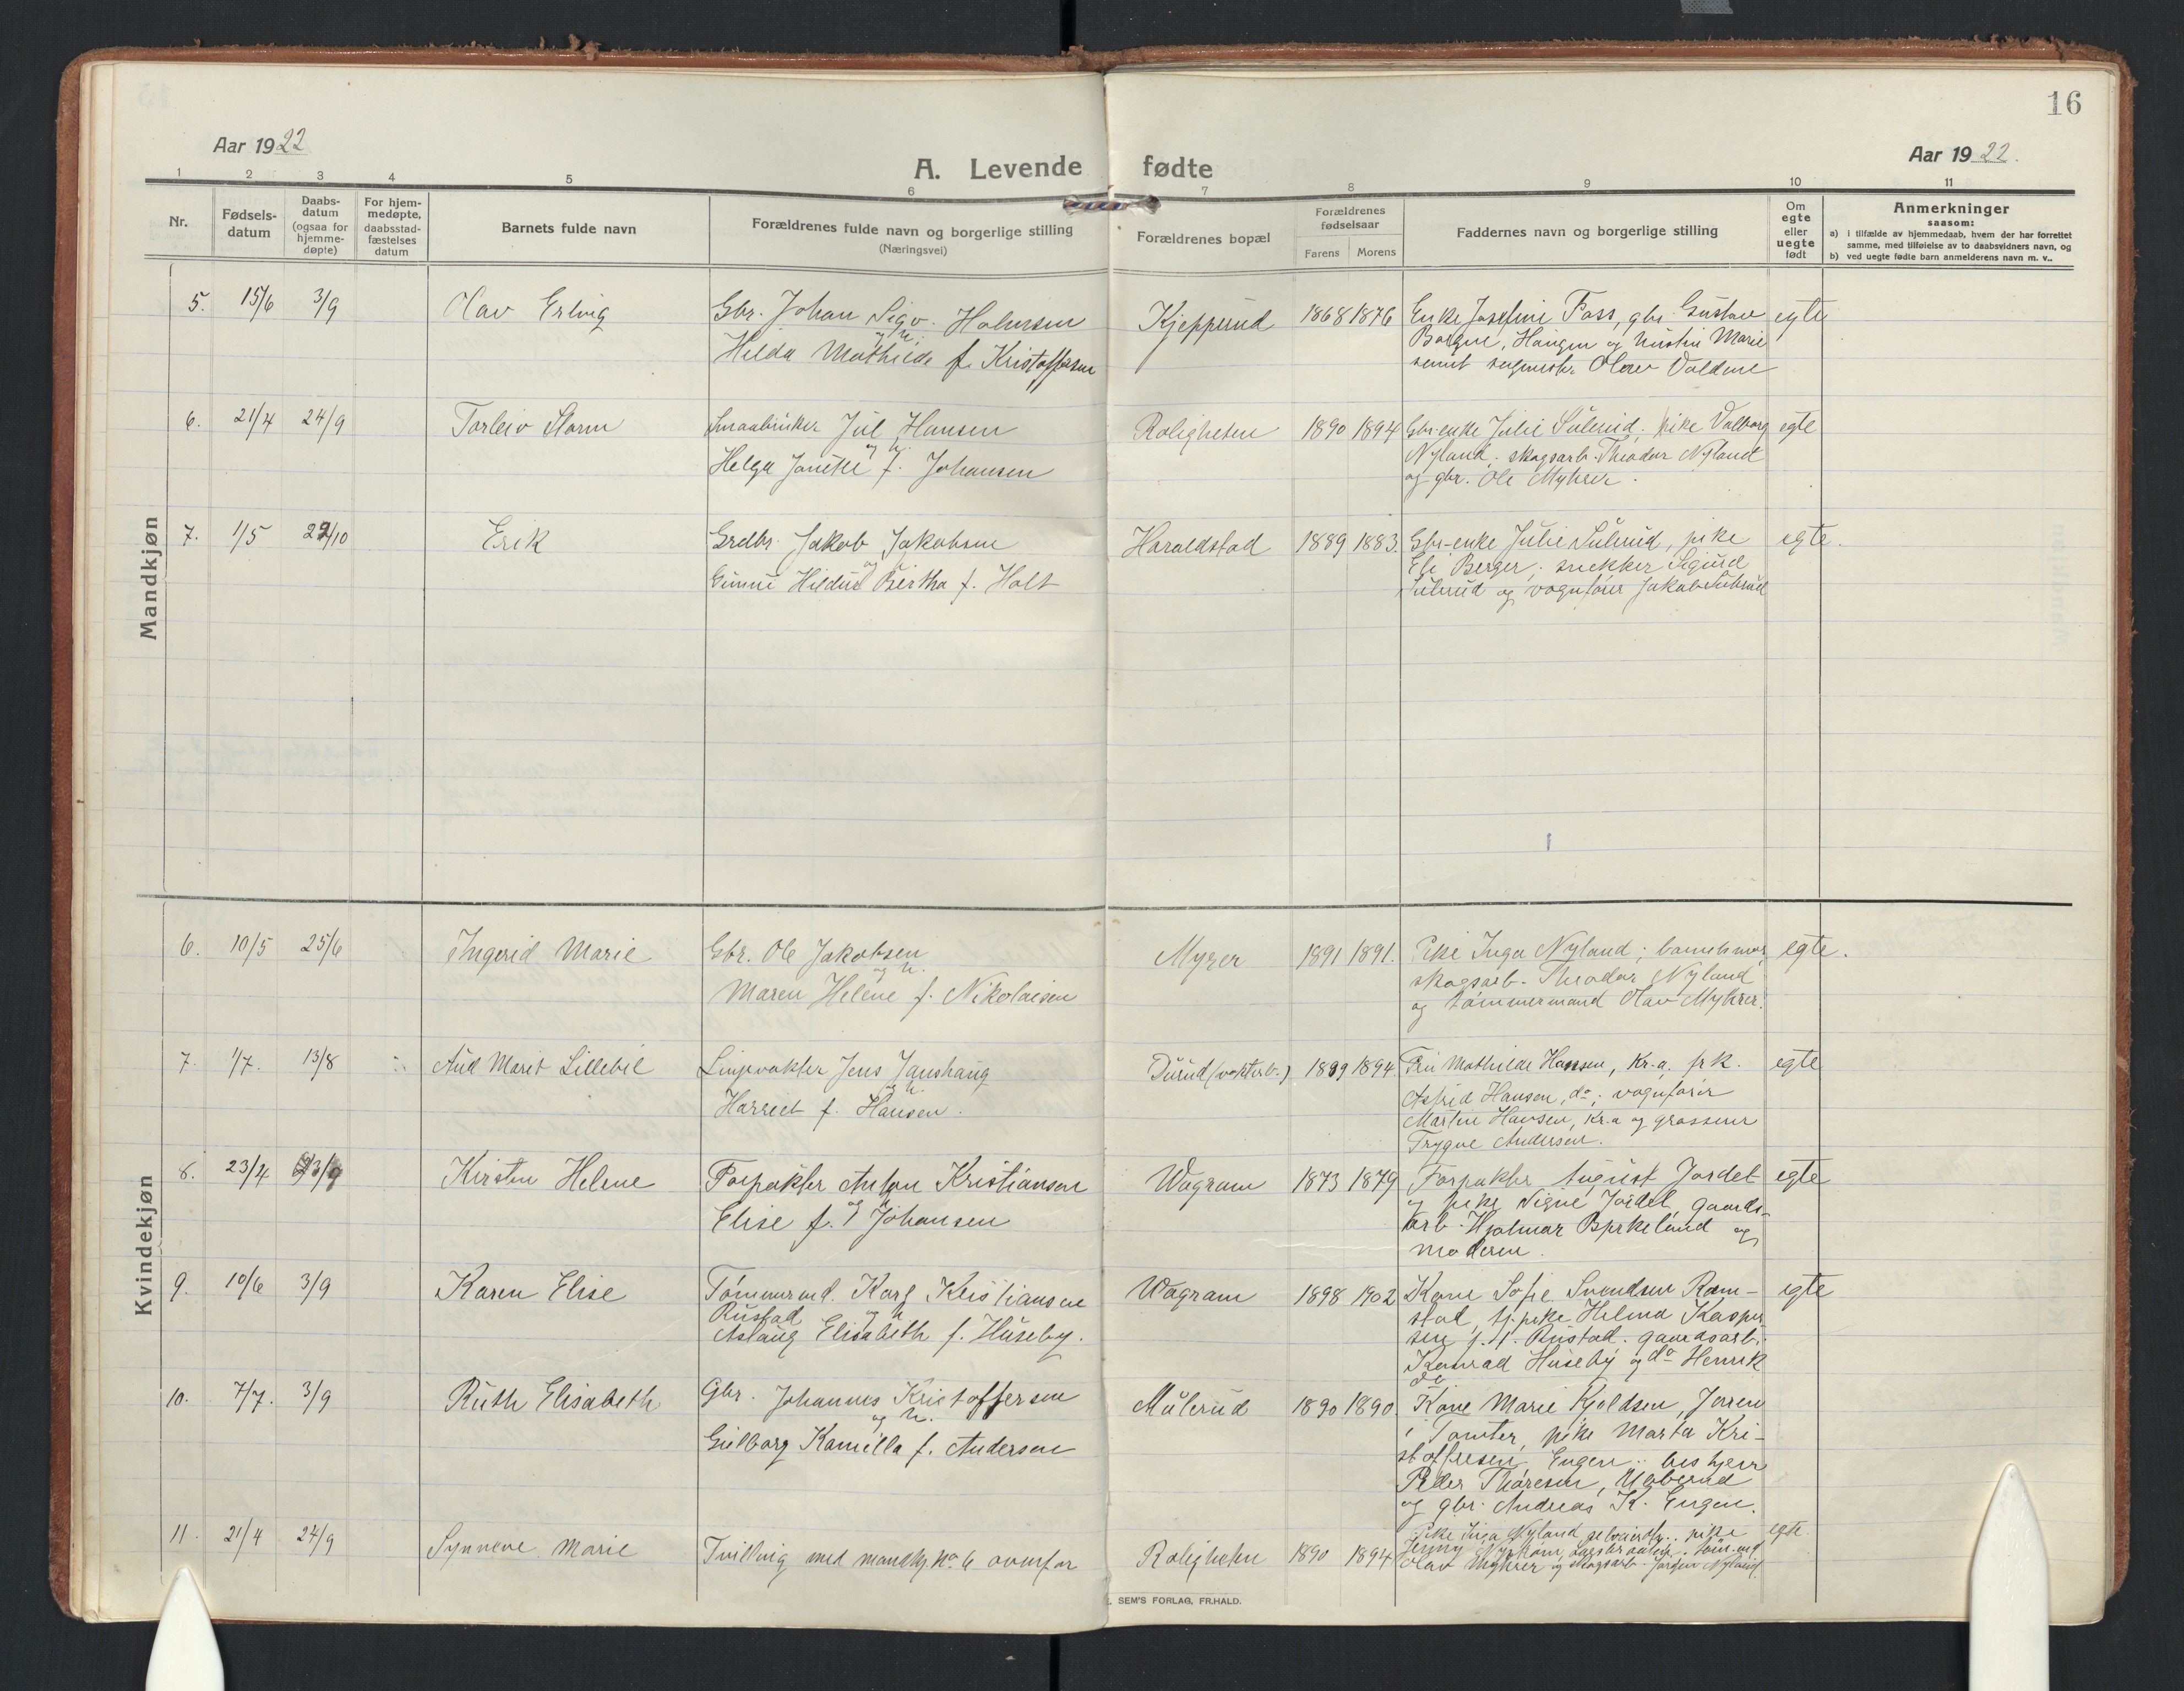 16
Aar 1922
Aar 1922.
A. Levende fødte
1 2 3 4 5 6 7 8 9 10 11
Nr.
Fødsels-
datum
Daabs-
datum
(ogsaa for
hjemme-
døpte)
For hjem-
medøpte,
daabsstad-
fæstelses
datum
Barnets fulde navn
Forældrenes fulde navn og borgerlige stilling
(Næringsvei)
Forældrenes bopæl
Forældrenes
fødselsaar
Farens Morens
Faddernes navn og borgerlige stilling
Om
egte
eller
uegte
født
Anmerkninger
saasom:
a) i tilfælde av hjemmedaab, hvem der har forrettet
samme, med tilføielse av to daabsvidners navn, og
b) ved uegte fødte barn anmelderens navn m. v..
Mandkjøn
5. 15/6 3/9 Olav Erling Gbr. Johan Sigv. Halvorsen Kjepperud 1868 1876 Enke Josefine Foss, gbr. Gustav egte
og h.
Hilda Mathilde f. Kristoffersen
Haugen og Marie
samt Olav Valdene
6. 21/4 24/9 Torleiv Storm Smaabruker Jul Hansen Roligheten 1890 1894 Gbr-enke Julie Sulerud, pike Valborg egte
og h.
Helga f. Johansen
Nyland, skogsarb. Theodor Nyland
og gbr. Ole Myhrer.
7. 1/5 29/10 Erik Grdbr. Jakob Jakobsen Haraldstad 1889 1883. Gbr-enke Julie Sulerud, pike egte.
og h.
Gunni Hildur Bertha f. Holt
Eli Berger, snekker Sigurd
Sulerud og vognfører Jakob Sulerud
Kvindekjøn
6. 10/5 25/6 Ingerid Marie Gbr. Ole Jakobsen Myrer 1891 1891. Pike Inga Nyland; barnets mor, egte.
og h.
Maren Helene f. Nikolaisen
skogsarb. Theodor Nyland
og tømmermand Olav Myhrer.
7. 1/7. 13/8 Aud Marit Lillebil Linjevokter Jens Janshaug Durud (vokterb.) 1889 1894 Fru Mathilde Hansen, Kr.a. frk. egte
og h.
Harriet f. Hansen.
Astrid Hansen, do; vognfører
Martin Hansen, Kr.a og grosserer
Trygve Andersen.
8. 23/4 3/9 Kirsten Helene Forpakter Anton Kristiansen Wagram 1873 1879 Forpakter August Jordet egte
og h
Elise f. Johansen
og pike Signe Jordet, gaards-
arb. Hjalmar Bjrkeland og
moderen.
9. 10/6 3/9 Karen Elise Tømmermd. Karl Kristiansen Wagram 1898 1902 Kone Sofie Svendsen Ram- egte
Rustad og h
Aslaug Elisabeth f. Huseby.
stad, tj.pike Helma Kasper-
sen, Rustad. gaardsarb.
Konrad Huseby og do Henrik
do
10. 7/7. 3/9 Ruth Elisabeth Gbr. Johannes Kristoffersen Mulerud 1890 1890 Kone Marie Kjeldsen, Jorren
og h.
Gulborg Kamilla f. Andersen
i Tomter, pike Marta Kri-
stoffersen, Engen; beskjerer
Peder Thoresen, Ubberud
og gbr. Andreas K. Engen.
11. 21/4 24/9 Synnøve Marie Tvilling med mandkj. no 6 ovenfor Roligheten 1890 1894 Pike Inga Nyland pike egte.
Jenny tøm.md
Olav Myhrer og skogsarb. Jørgen Nyland.
SEM'S FORLAG, FR.HALD.